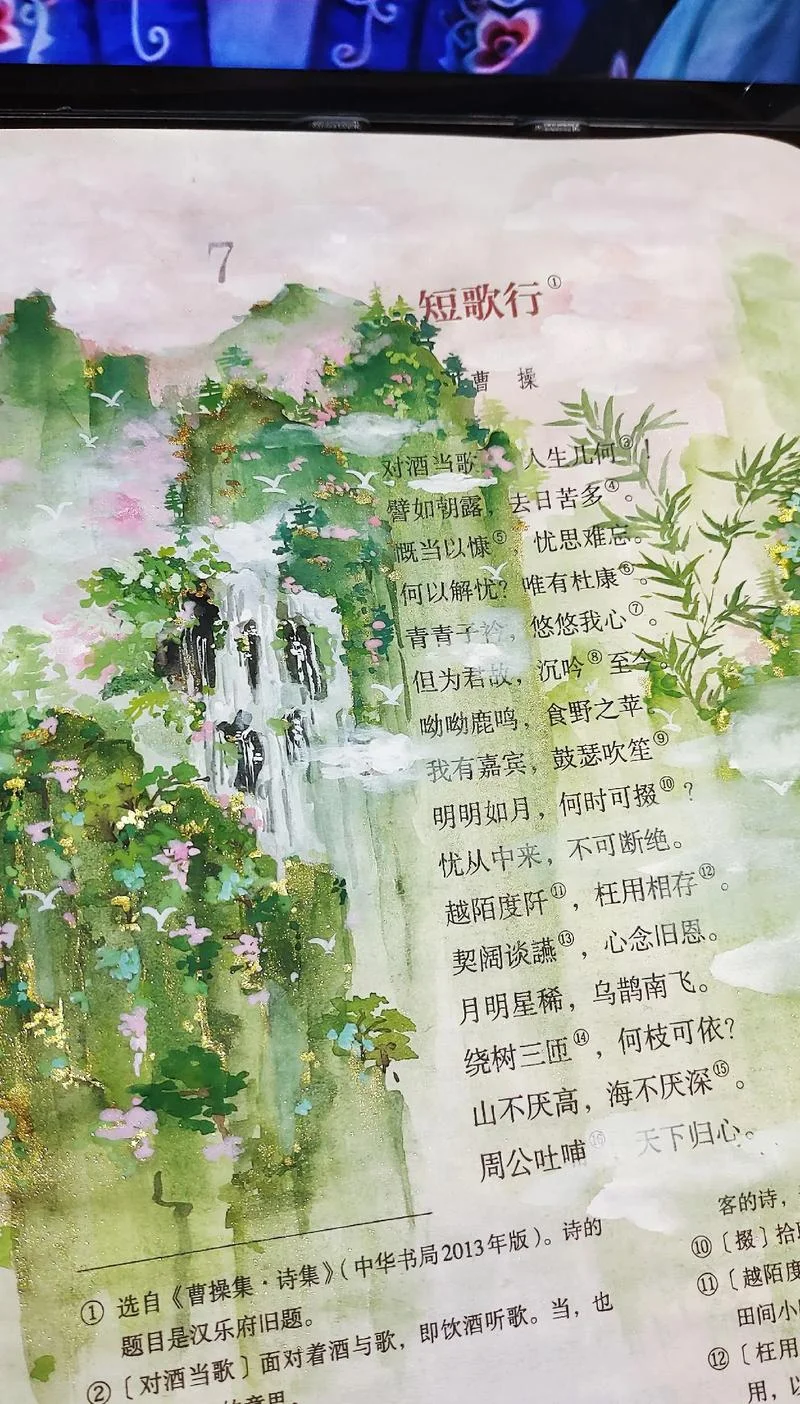 7
短歌行①
曹 操
对酒当歌 人生几何③！
譬如朝露，去日苦多④。
慨当以慷⑤，忧思难忘。
何以解忧？唯有杜康⑥。
青青子衿，悠悠我心⑦。
但为君故，沉吟⑧至今。
呦呦鹿鸣，食野之苹。
我有嘉宾，鼓瑟吹笙⑨
明明如月，何时可掇⑩？
忧从中来，不可断绝。
越陌度阡⑪，枉用相存⑫。
契阔谈讌⑬，心念旧恩。
月明星稀，乌鹊南飞。
绕树三匝⑭，何枝可依？
山不厌高，海不厌深⑮。
周公吐哺⑯，天下归心。
① 选自《曹操集·诗集》（中华书局2013年版）。诗的
题目是汉乐府旧题。
② 〔对酒当歌〕面对着酒与歌，即饮酒听歌。当，也
的意思。
客的诗，
⑩〔掇〕拾
⑪〔越陌度
田间小
⑫〔枉用
用，以